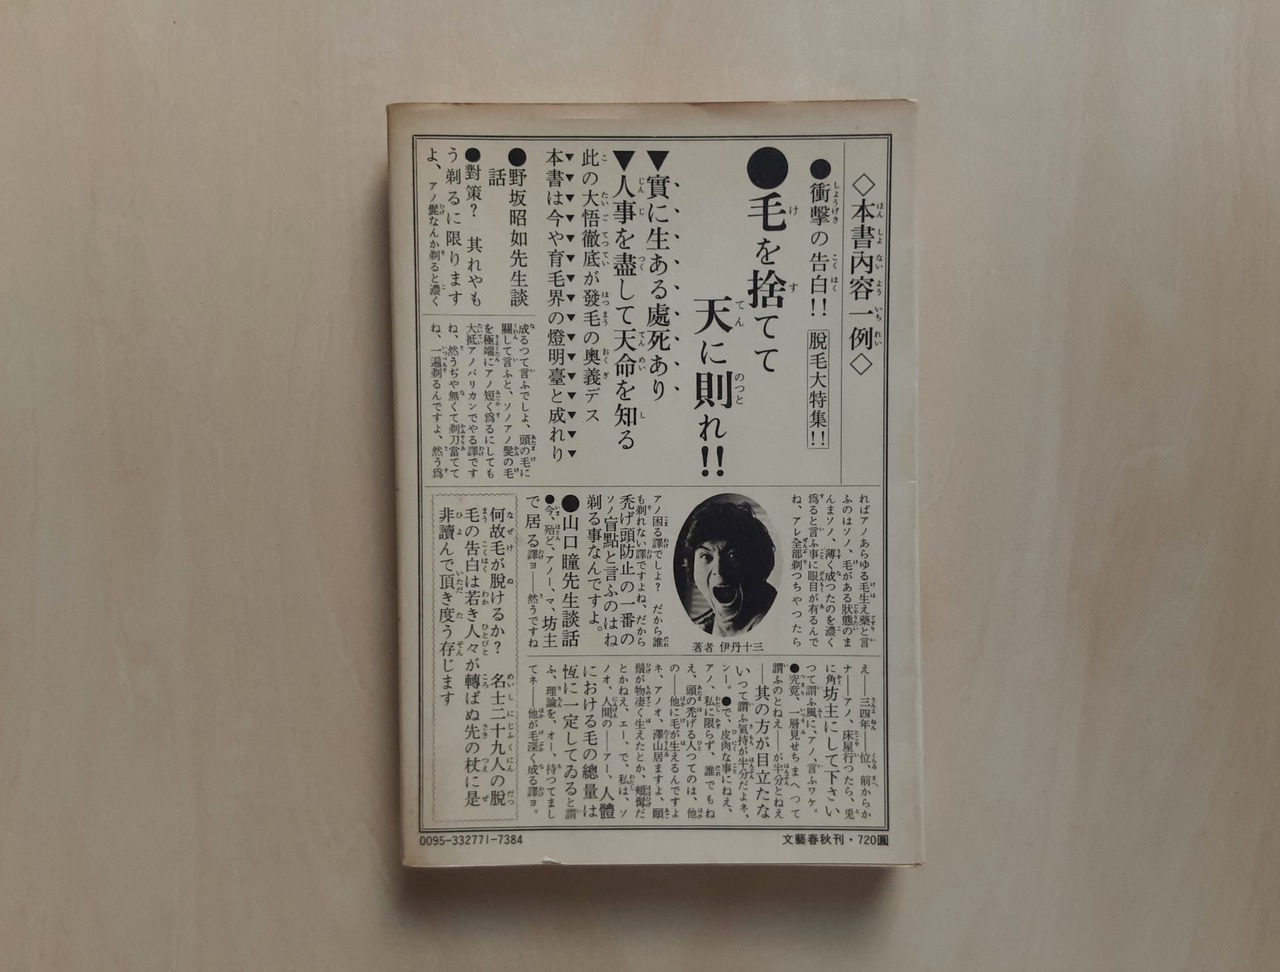 ◇本書內容一例◇
●衝擊の告白!! 脫毛大特集!!
●毛を捨てて
天に則れ!!
▼實に生ある處死あり
▼人事を盡して天命を知る
此の大悟徹底が發毛の奧義デス
▼▼▼▼▼▼▼▼▼▼▼▼▼▼
本書は今や育毛界の燈明臺と成れり
●野坂昭如先生談
話
●對策？　其れやも
う剃るに限ります
よ、アノ髭なんか剃ると濃く
成るつて言ふでしよ、頭の毛に
關して言ふと、ソノアノ髮の毛
を極端にアノ短く爲るにしても
大抵アノバリカンでやる譯です
ね、然うぢや無くて剃刀當てて
ね、一遍剃るんですよ、然う爲
ればアノあらゆる毛生え藥と言
ふのはソノ、毛がある狀態のま
んまソノ、薄く成つたのを濃く
爲ると言ふ事に眼目が有るんで
ね、アレ全部剃つちやつたら
著者 伊丹十三
アノ困る譯でしよ？　だから誰
も剃れない譯ですよね、だから
禿げ頭防止の一番の
ソノ盲點と言ふのはね
剃る事なんですよ。
●山口瞳先生談話
●今、殆ど、アノー、マ、坊主
で居る譯ヨ――然うですね
え――三四年　位、前からか
ナ――アノ、床屋行つたら、兎
に角坊主にして下さい
つて謂ふ風に、アノ、言ふワケ。
●究竟、一層見せちまへつて
謂ふのとねえ――が半分とねえ
――其の方が目立たな
いつて謂ふ氣持が半分だよネ、
ンー。●で、皮肉な事にねえ、
アノ、私に限らず、誰でもね
え、頭の禿げる人つてのは、他
の――他に毛が生えるんですよ
ネ、アノオ、澤山居ますよ、頤
鬚が物凄く生えたとか、蠟髯だ
とかねえ、エー、で、私は、ソ
ノオ、人間の――アー、人體
における毛の總量は
恆に一定してゐると謂
ふ、理論を、オー、持つてまし
てネ、他が毛深く成る譯ヨ。
何故毛が脫けるか？　名士二十九人の脫
毛の告白は若き人々が轉ばぬ先の杖に是
非讀んで頂き度う存じます
0095-332771-7384
文藝春秋刊・720圓